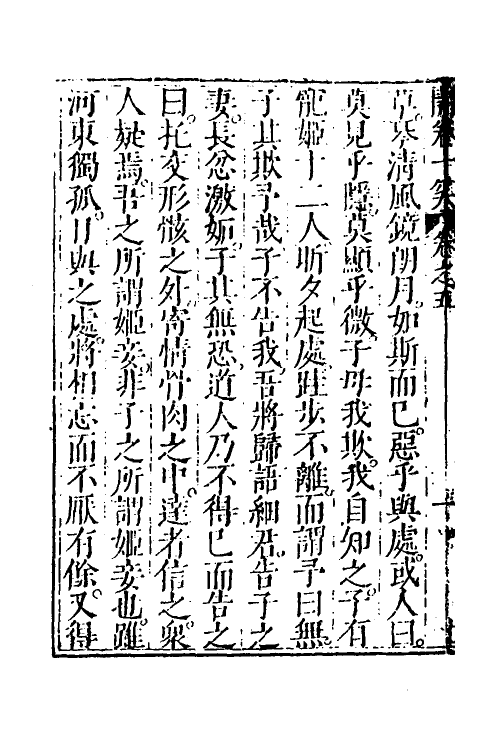 開卷一笑 卷之五
草琴清風鏡朗月。如斯而已。惡乎與處。或人曰。
莫見乎隱。莫顯乎微。子毋我欺。我自知之。子有
寵姬十二人。昕夕起處。跬步不離。而謂予曰無。
子其欺予哉。子不告我。吾將歸語細君。告子之
妻。長忿激妬。子其無恐。道人乃不得已而告之
曰。托交形骸之外。寄情骨肉之中。達者信之。衆
人疑焉。吾之所謂姬妾。非子之所謂姬妾也。雖
河東獨孤。日與之處。將相忘而不厭有餘。又得